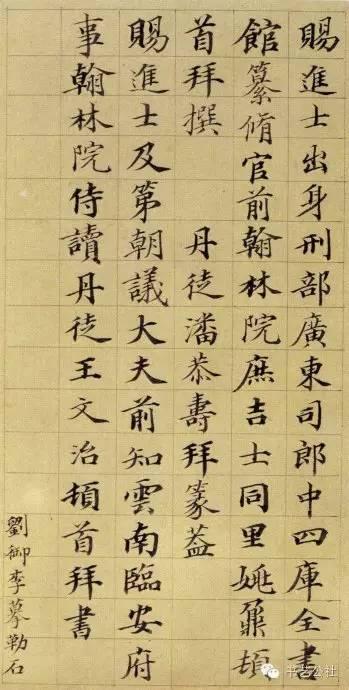 賜進士出身刑部廣東司郎中四庫全書
館纂脩官前翰林院庶吉士同里姚鼐頓
首拜撰　丹徒潘恭壽拜篆蓋
賜進士及第朝議大夫前知雲南臨安府
事翰林院侍讀丹徒王文治頓首拜書
劉御李摹勒石
书艺公社